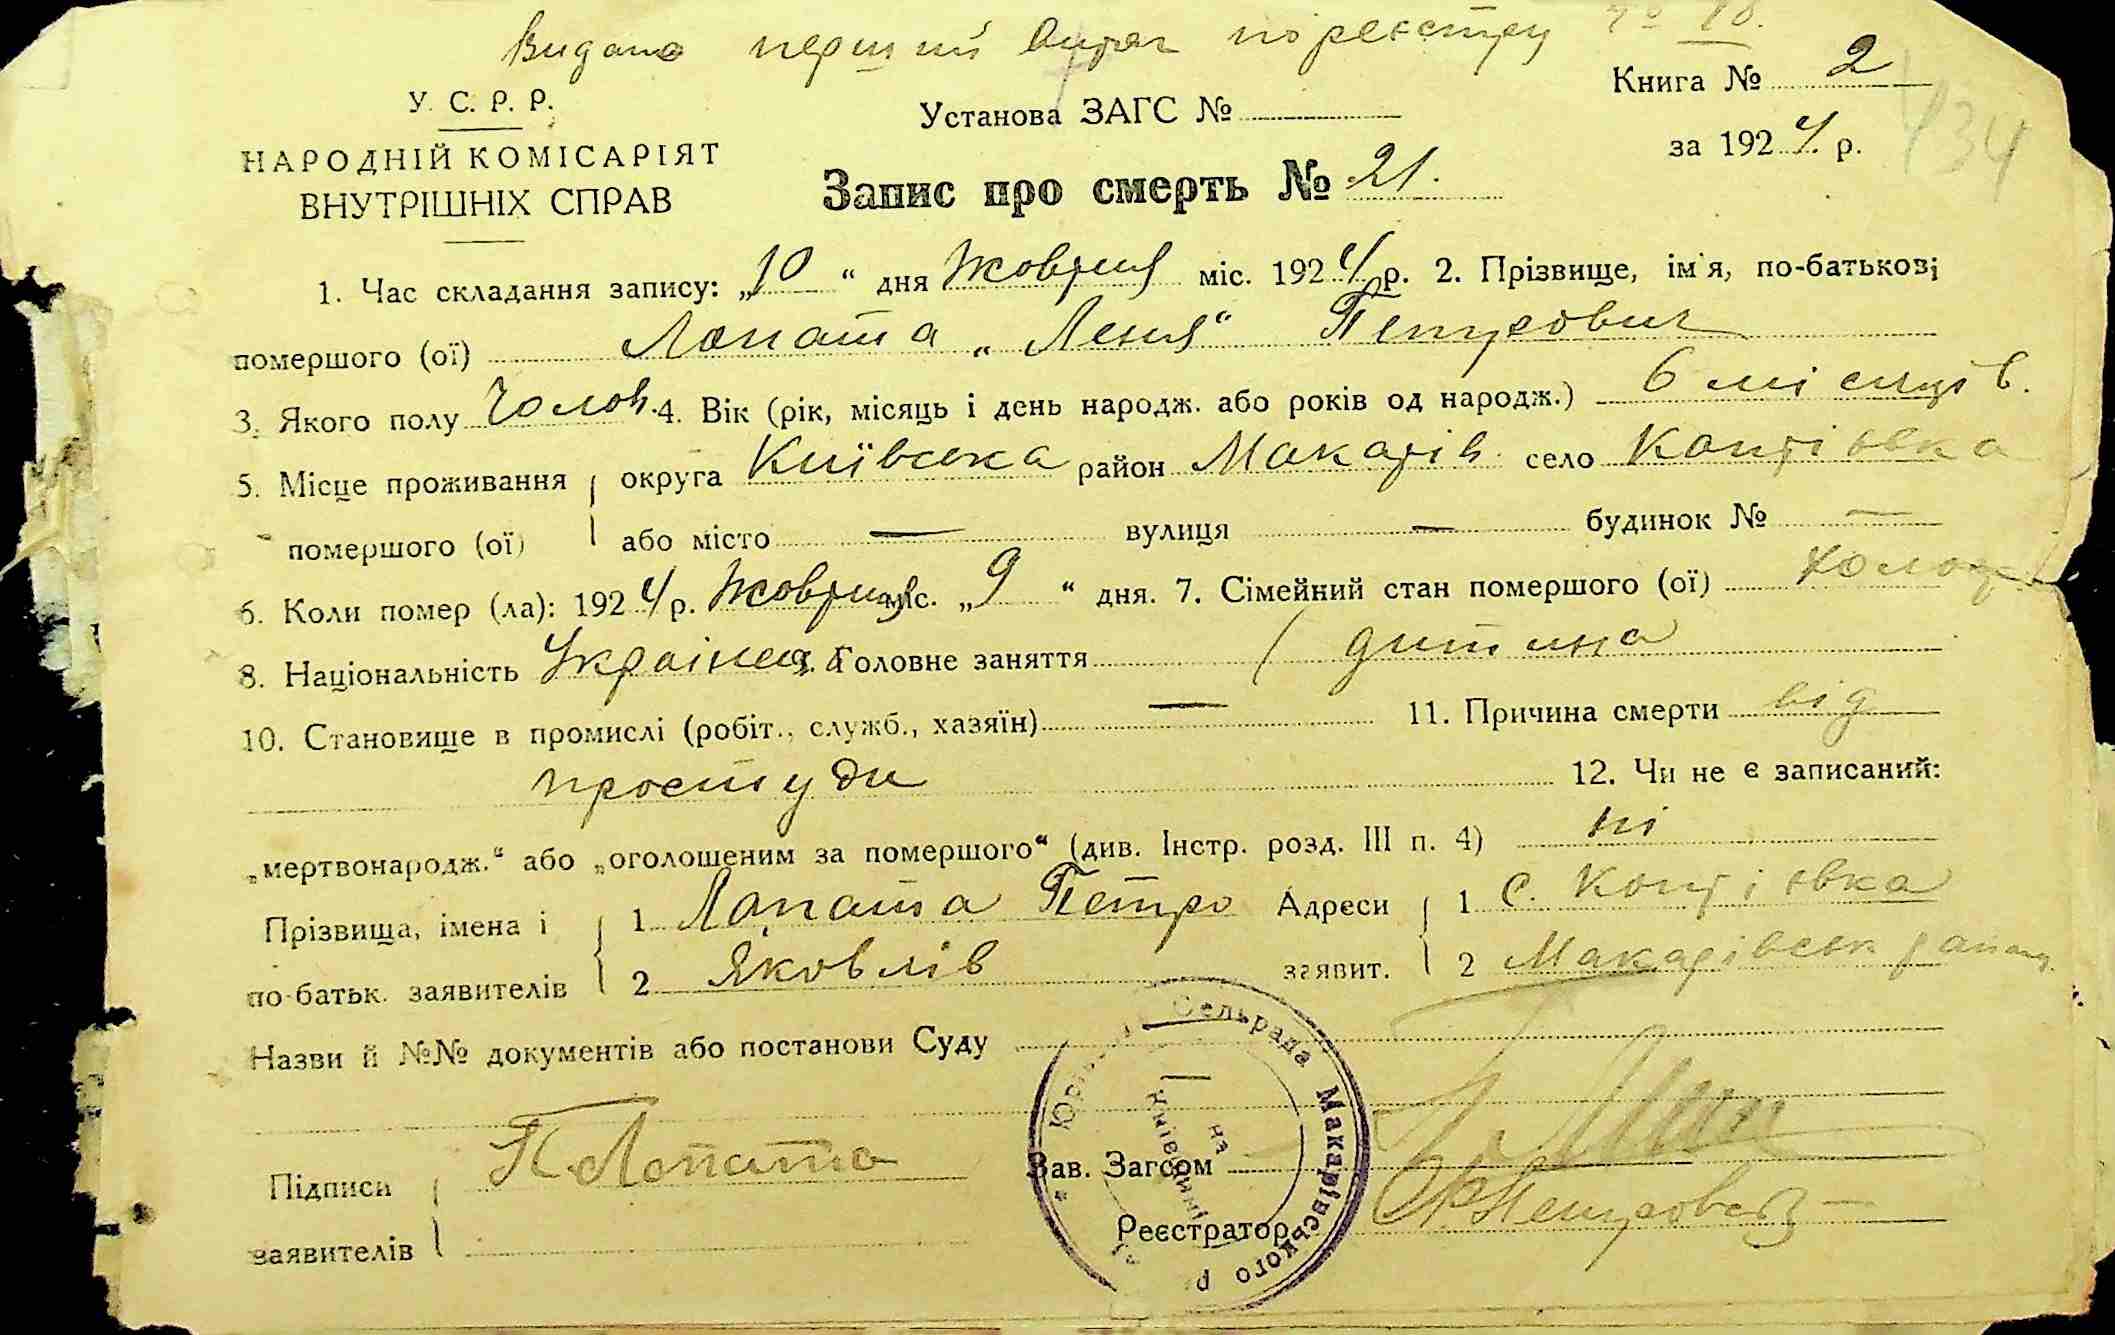 Видано перший витяг по реєстру № 18.
У. С. Р. Р.
НАРОДНІЙ КОМІСАРІЯТ
ВНУТРІШНІХ СПРАВ
Установа ЗАГС №
Книга № 2
за 1924 р.
134
Запис про смерть № 21.
1. Час складання запису: „10“ дня жовтня міс. 1924 р. 2. Прізвище, ім'я, по-батькові
помершого (ої) Лопата „Леня“ Петрович
3. Якого полу чолов. 4. Вік (рік, місяць і день народж. або років од народж.) 6 місяців.
5. Місце проживання округа Київська район Макарів село Копіївка
помершого (ої) або місто — вулиця — будинок № —
6. Коли помер (ла): 1924 р. жовтня міс. „9“ дня. 7. Сімейний стан помершого (ої)
8. Національність Українец 9. Головне заняття дитина
10. Становище в промислі (робіт., служб., хазяїн) — 11. Причина смерти від
простуди 12. Чи не є записаний:
„мертвонародж.“ або „оголошеним за помершого“ (див. Інстр. розд. III п. 4) ні
Прізвища, імена і 1 Лопата Петро Адреси 1 с. Копіївка
по-батьк. заявителів 2 Яковлів заявит. 2 Макарівськ
Назви й №№ документів або постанови Суду
Сельрада Макарівського р
на Київщині
Підписи П Лопата Зав. Загсом
заявителів Реєстратор